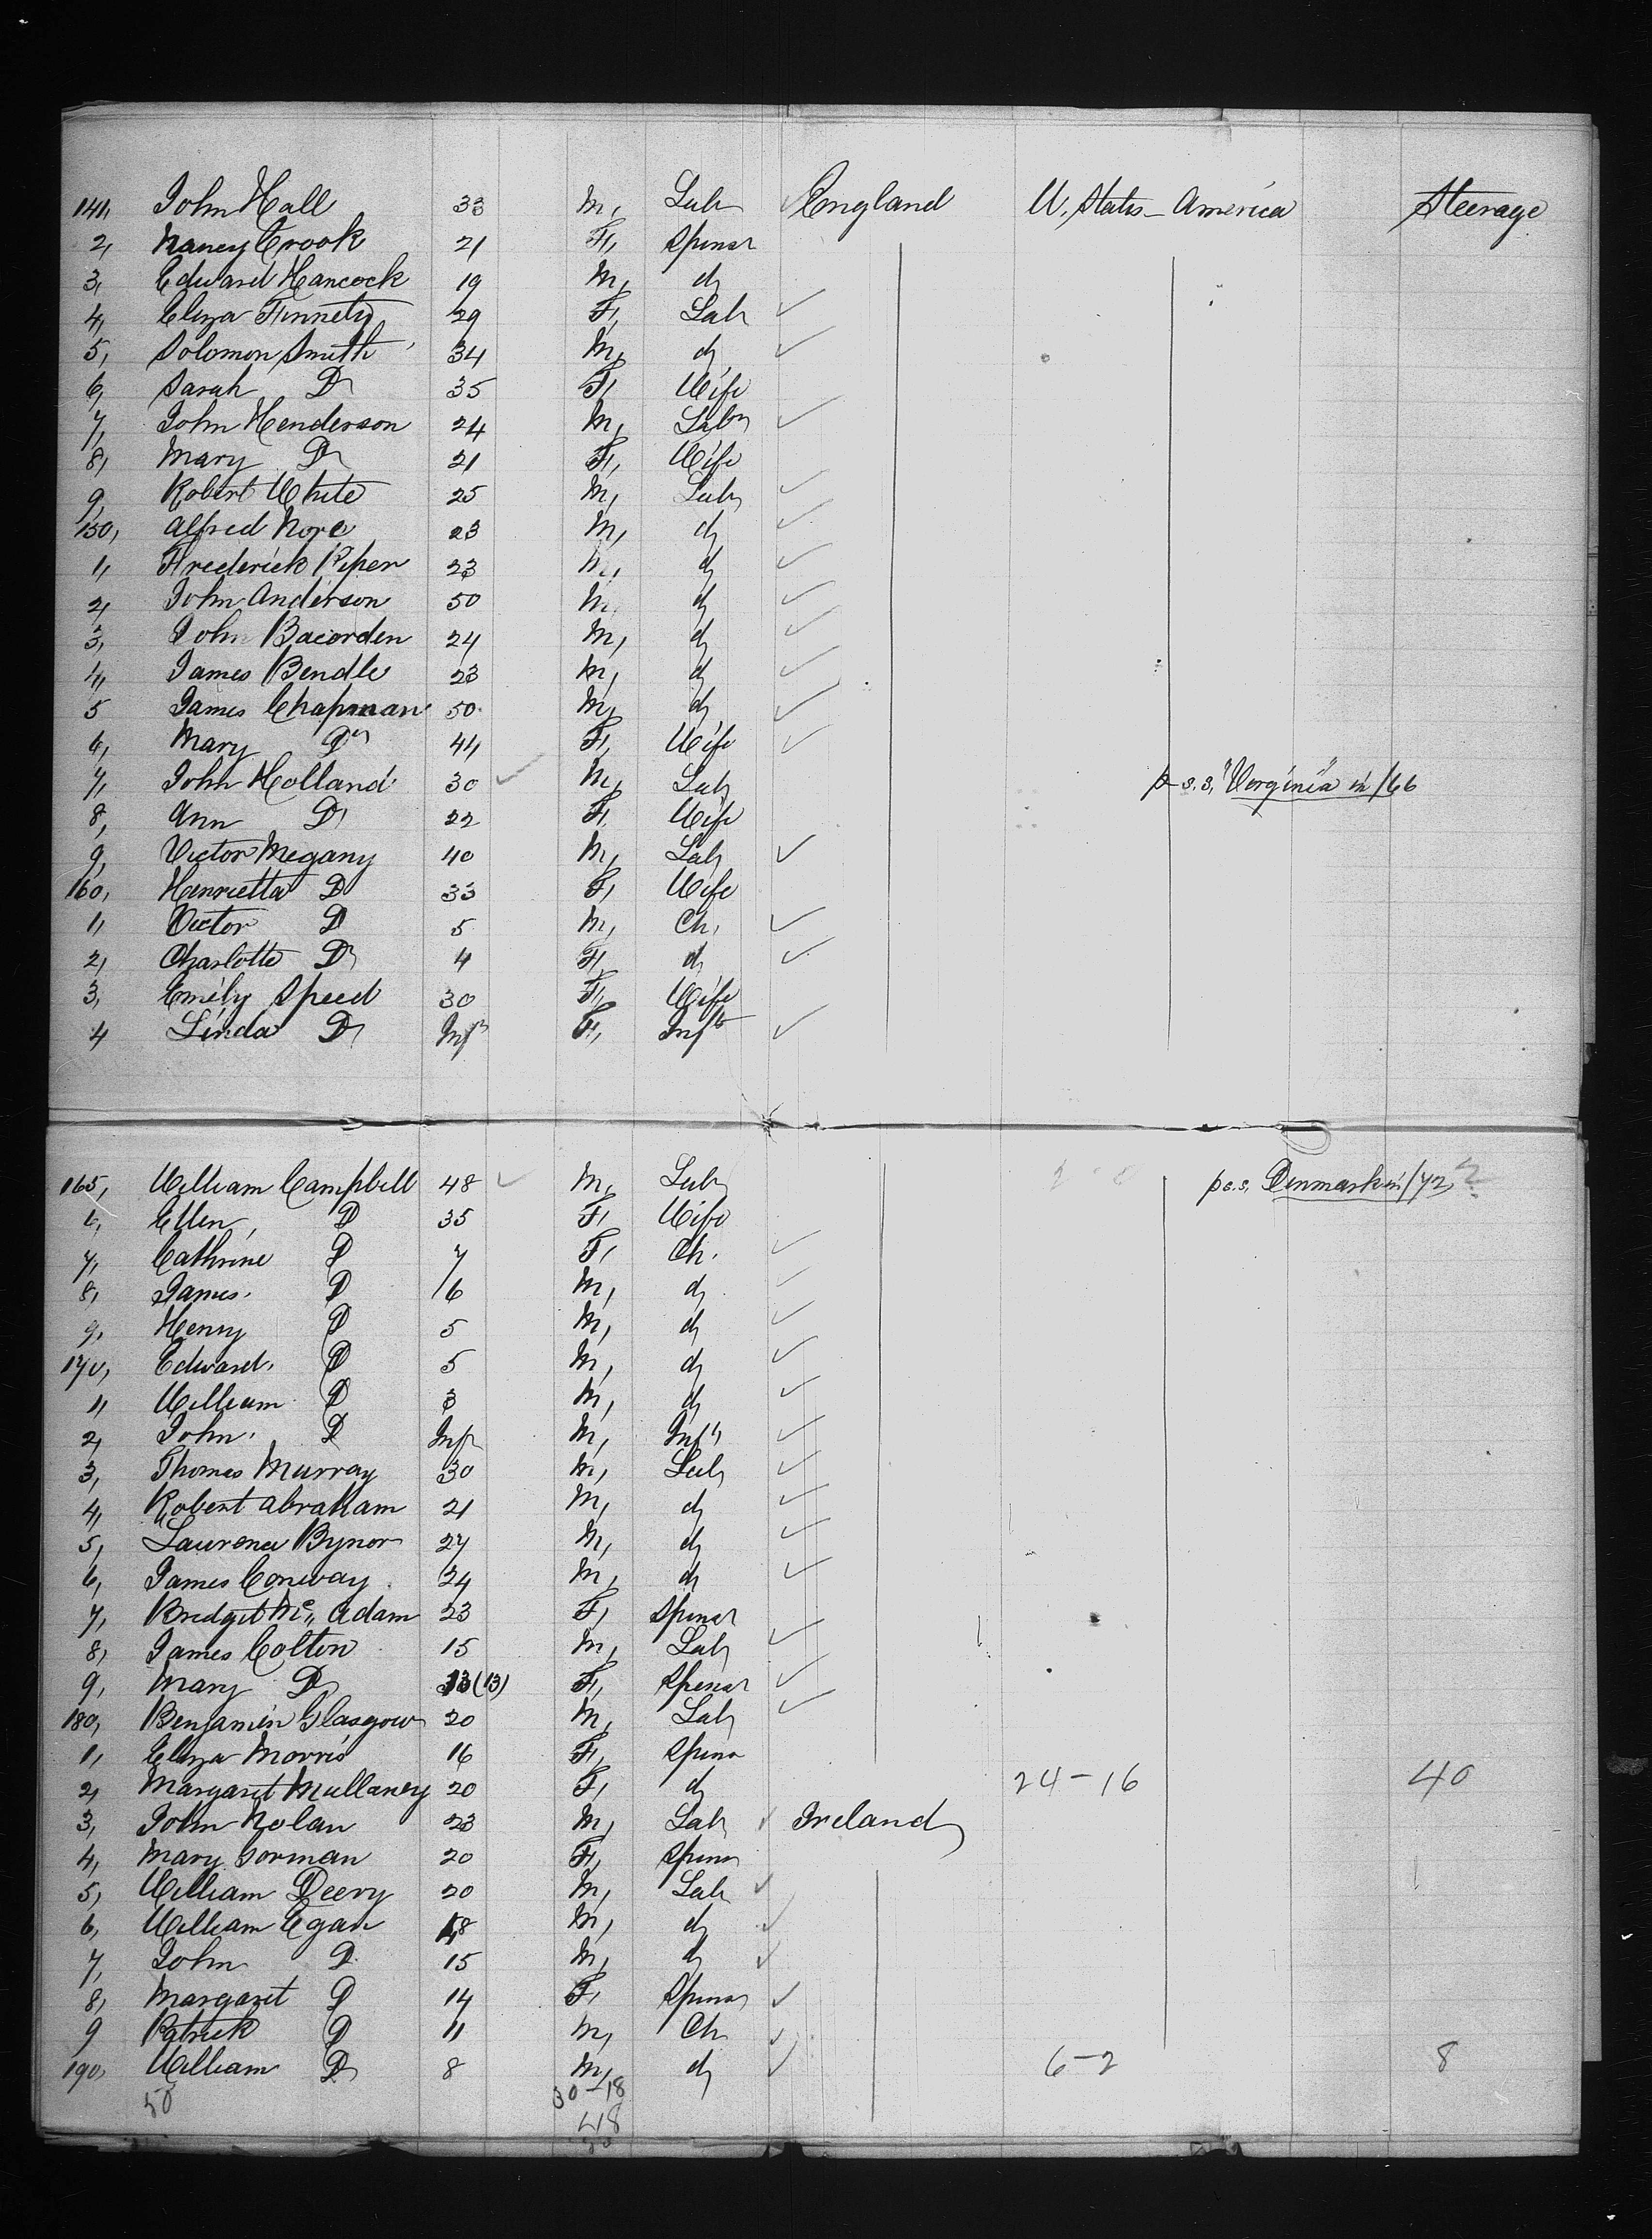 141, John Hall 33 M, Lab England U. States - America Steerage
2, Nancy Crook 21 F, Spinsr
3, Edward Hancock 19 M, do
4, Eliza Finnety 29 F, Lab
5, Solomon Smith 34 M, do
6, Sarah Do 35 F, Wife
7, John Henderson 24 M, Labr
8, Mary Do 21 F, Wife
9, Robert White 25 M, Labr
150, Alfred Nore 23 M, do
1, Frederick Piper 23 M, do
2, John Anderson 50 M, do
3, John Bacorden 24 M, do
4, James Bendle 23 M, do
5 James Chapman 50 M, do
6, Mary Do 44 F, Wife
7, John Holland 30 M, Labr p s.s. "Virginia" in /66
8, Ann Do 22 F, Wife
9, Victor Megany 40 M, Labr
160, Henrietta Do 33 F, Wife
1, Victor Do 5 M, Ch,
2, Charlotte Do 4 F, do
3, Emily Speed 30 F, Wife
4 Linda Do Inft F, Inft
165, William Campbell 48 M, Labr p s.s. Denmark in /72
6, Ellen, Do 35 F, Wife
7, Cathrine Do 7 F, Ch.
8, James Do 6 M, do
9, Henry Do 5 M, do
170, Edward Do 5 M, do
1, William Do 3 M, do
2, John Do Inft M, Inft
3, Thomas Murray 30 M, Labr
4, Robert Abraham 21 M, do
5, Laurence Bynor 27 M, do
6, James Conway 24 M, do
7, Bridget Mc Adam 23 F, Spinsr
8, James Colton 15 M, Labr
9, Mary Do 13 (13) F, Spinsr
180, Benjamin Glasgow 20 M, Labr
1, Eliza Morris 16 F, Spinr
2, Margaret Mullaney 20 F, do 24-16 40
3, John Nolan 23 M, Labr Ireland
4, Mary Gorman 20 F, Spinr
5, William Deery 20 M, Lab
6, William Egan 18 M, do
7, John Do 15 M, do
8, Margaret Do 14 F, Spinsr
9 Patrick Do 11 M, Ch
190, William Do 8 M, do 6-2 8
50 30-18
48